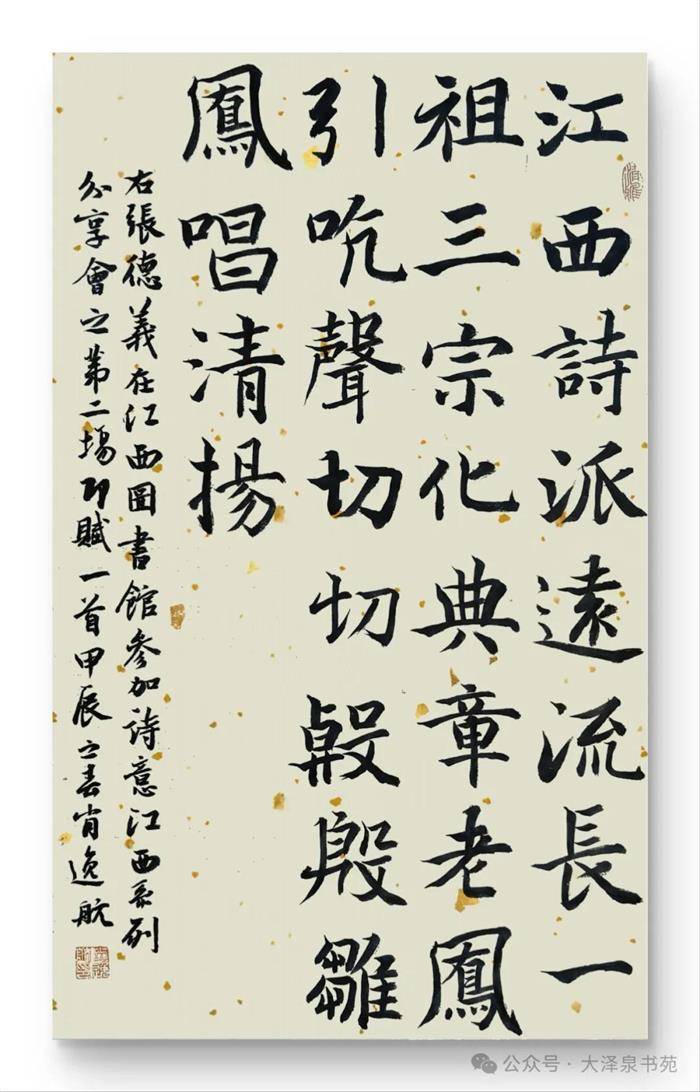 江西詩派遠流長一
祖三宗化典章老鳳
引吭聲切切殷殷雛
鳳唱清揚
右張德義在江西圖書館參加詩意江西系列
分享會之第二場即賦一首甲辰之春肖逸航
公众号 · 大泽泉书苑